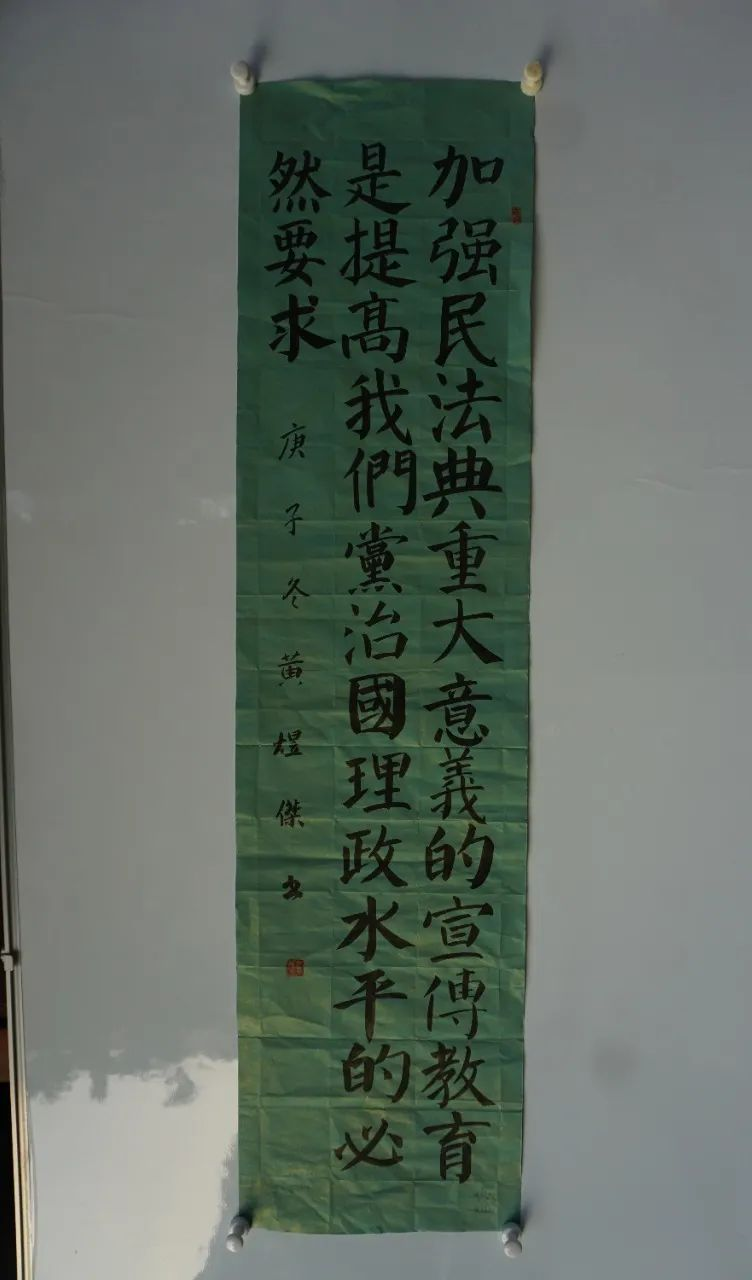 加强民法典重大意義的宣傳教育
是提高我們黨治國理政水平的必
然要求
庚子冬黄煜傑书